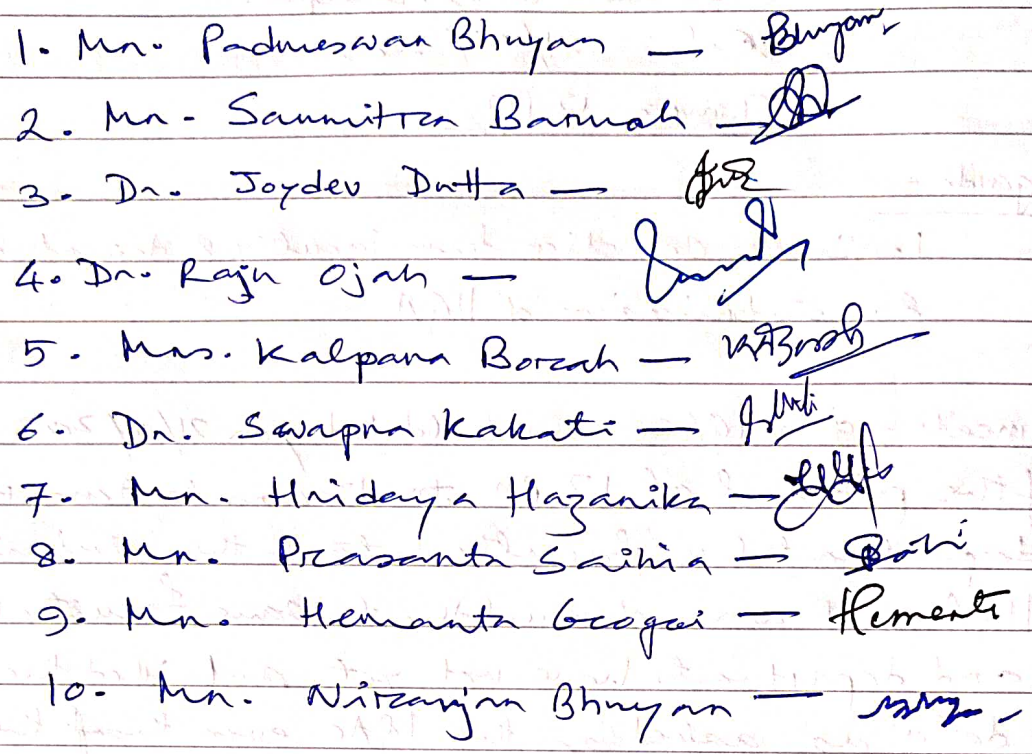 1. Mr. Padmeswar Bhuyan — Bhuyan
2. Mr. Saumitra Baruah —
3. Dr. Joydev Dutta —
4. Dr. Raju Ojah —
5. Mrs. Kalpana Borah — KBorah
6. Dr. Swapna Kakati —
7. Mr. Hridaya Hazarika —
8. Mr. Prasanta Saikia —
9. Mr. Hemanta Gogoi — Hemanta
10. Mr. Niranjan Bhuyan —